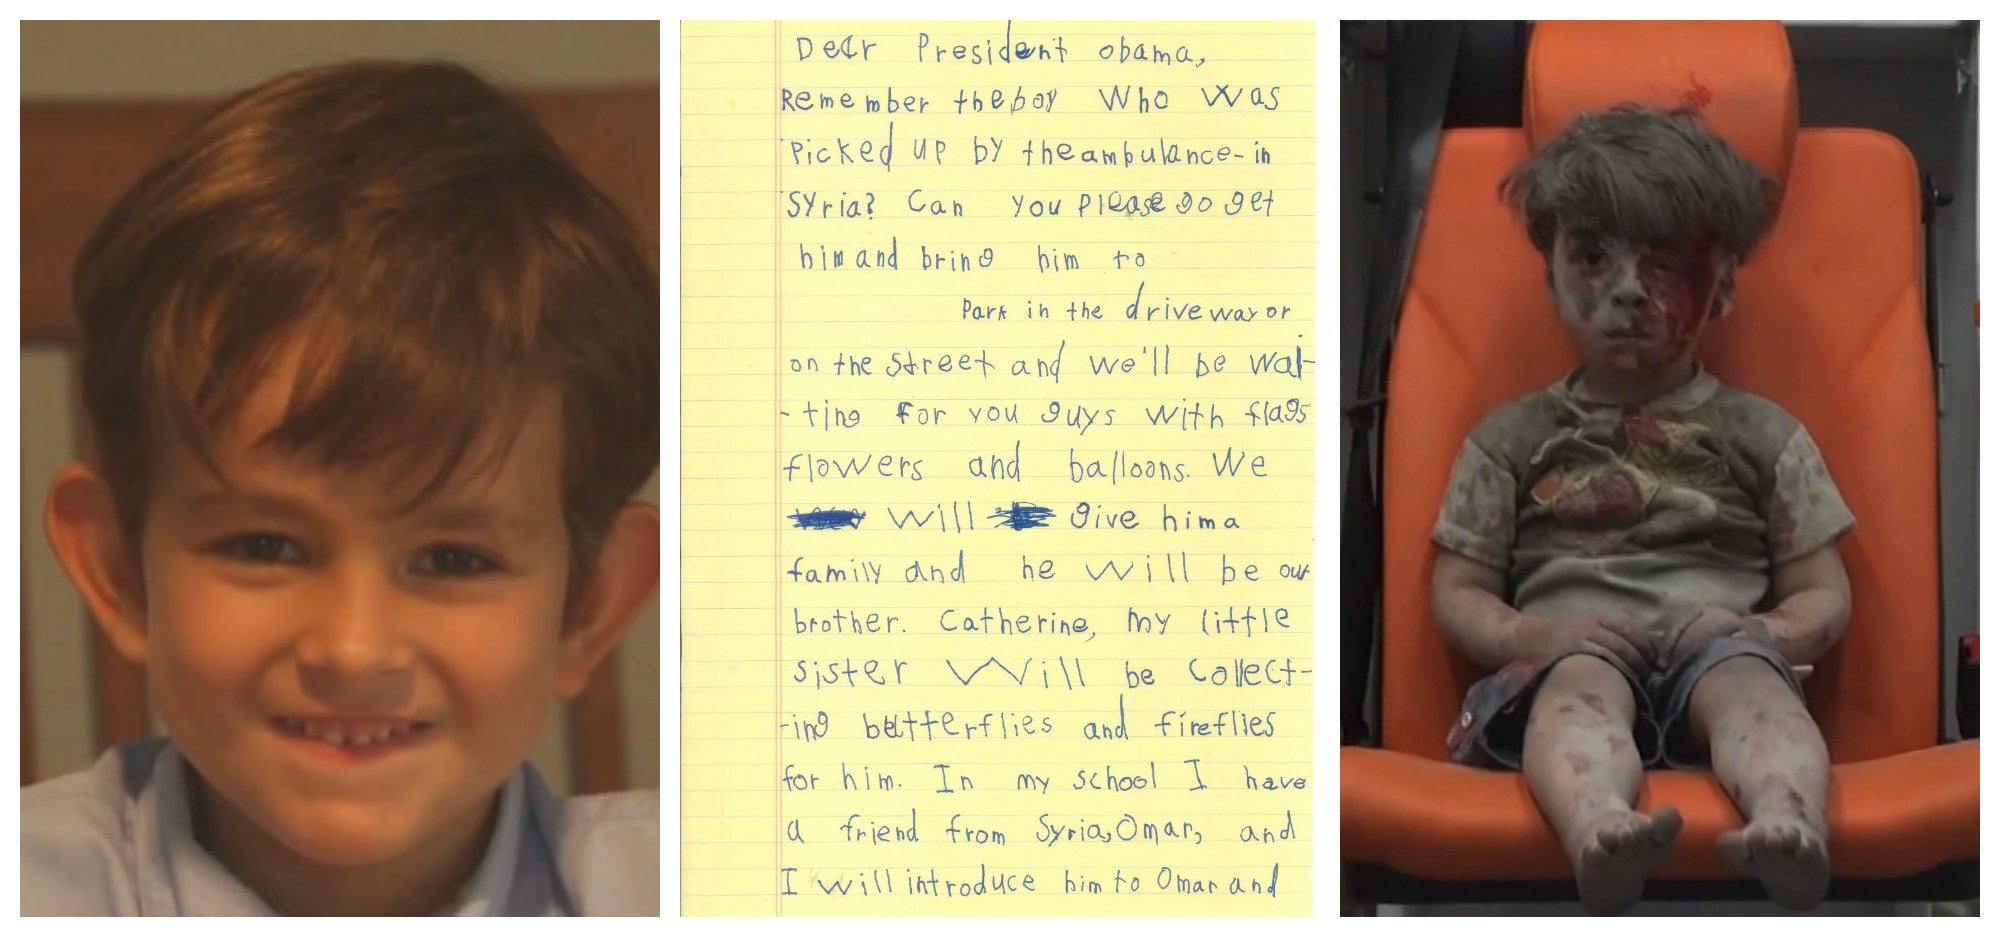 Dear President obama,
Remember the boy who was
picked up by the ambulance-in
Syria? Can you please go get
him and bring him to
Park in the driveway or
on the street and we'll be wai-
-ting for you guys with flags
flowers and balloons. We
will give him a
family and he will be our
brother. Catherine, my little
sister will be collect-
-ing butterflies and fireflies
for him. In my school I have
a friend from Syria, Omar, and
I will introduce him to Omar and